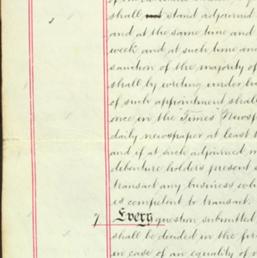 shall not stand adjourned
and at the same time and
week and at such time an
sanction of the majority of
shall by writing under
of such appointment shal
once in the "Times" Newsp
daily newspaper at least
and if at such adjourned m
debenture holders present
transact any business
is competent to transact.
7 Every question submitted
shall be decided in the fir
in case of an equality of